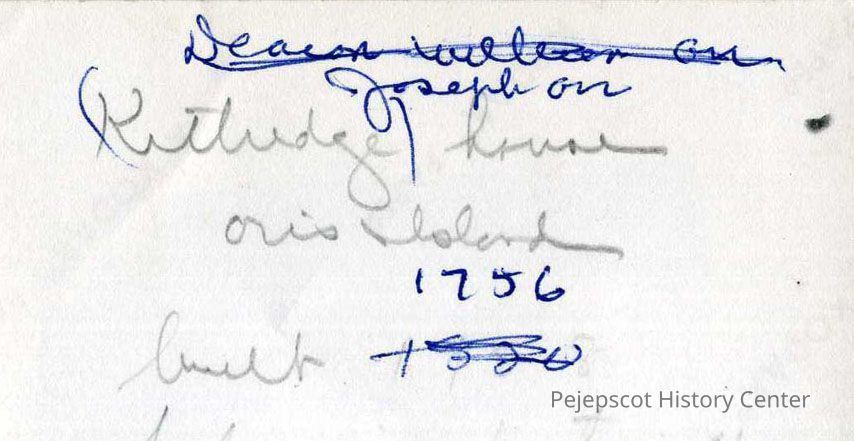 Deacon William Orr
Joseph Orr
(Kittredge) house
Orrs Island
1756
built
Pejepscot History Center